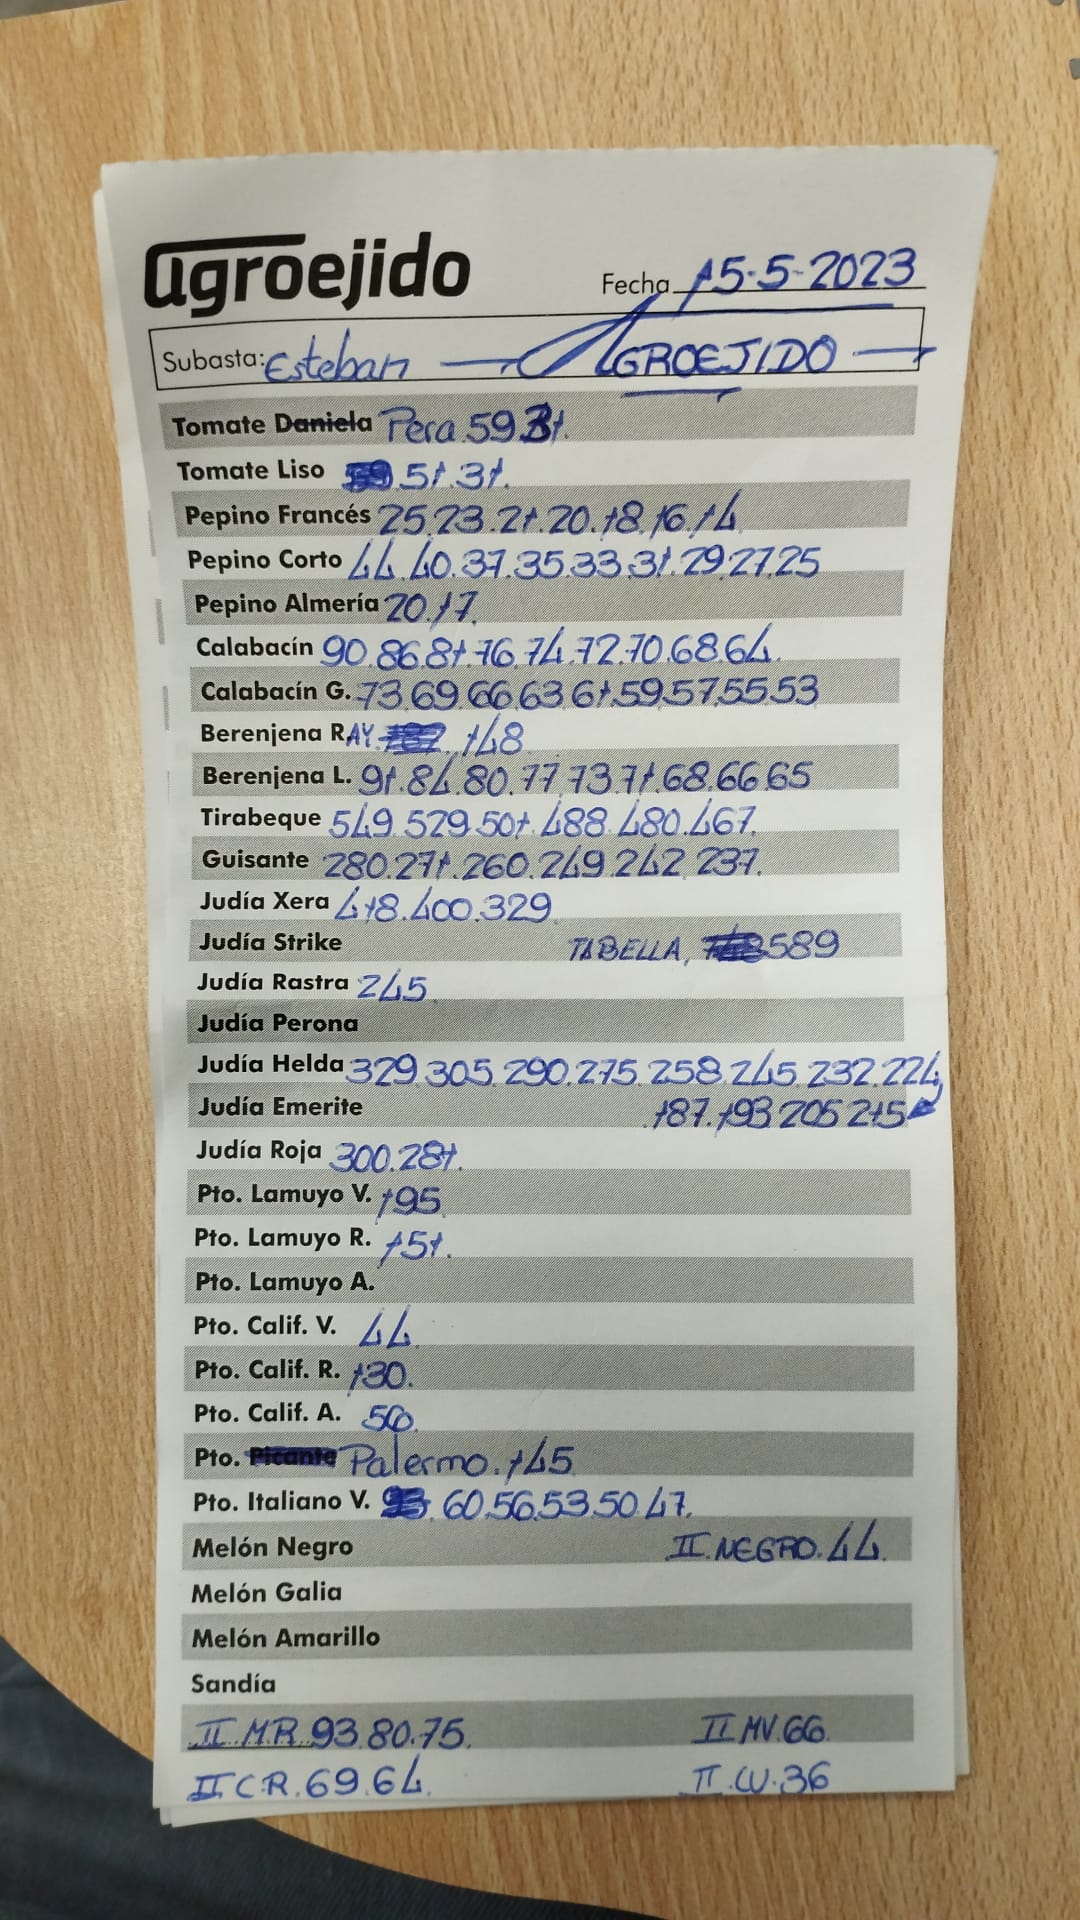 agroejido
Fecha 15-5-2023
Subasta: Esteban — AGROEJIDO —
Tomate Daniela Pera 59 31.
Tomate Liso 51.31.
Pepino Francés 25.23.21.20.18.16.14
Pepino Corto 44.40.37.35.33.31.29.27.25
Pepino Almería 20.17.
Calabacín 90.86.81.76.74.72.70.68.64.
Calabacín G. 73.69.66.63.61.59.57.55.53
Berenjena RAY. 148
Berenjena L. 91.84.80.77.73.71.68.66.65
Tirabeque 549.529.501.488.480.467.
Guisante 280.271.260.249.242.237.
Judía Xera 418.400.329
Judía Strike TABELLA, 589
Judía Rastra 245
Judía Perona
Judía Helda 329.305.290.275.258.245.232.224
Judía Emerite 187.193.205.215
Judía Roja 300.281.
Pto. Lamuyo V. 195
Pto. Lamuyo R. 151.
Pto. Lamuyo A.
Pto. Calif. V. 44
Pto. Calif. R. 130.
Pto. Calif. A. 56.
Pto. Picante Palermo. 145
Pto. Italiano V. 60.56.53.50.47.
Melón Negro II.NEGRO.44.
Melón Galia
Melón Amarillo
Sandía
II MR.93.80.75. II MV.66.
II C.R.69.64. II.CV.36